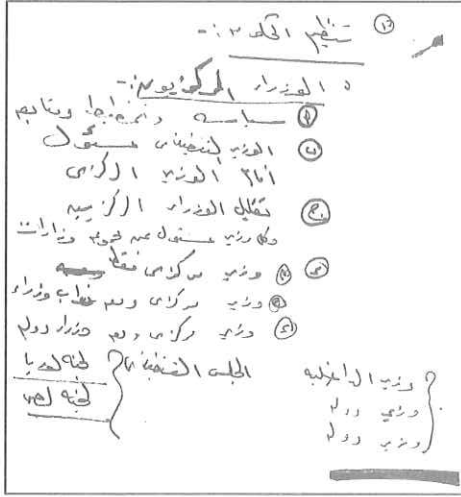 ١٢ تنظيم الحكومة :-
الوزراء المركزيون :-
أ سياسه وتخطيط ومتابعه
ب الوزير التنفيذى مسئول
أمام الوزير المركزى
ج تقليل الوزراء المركزيين
وكل وزير مسئول عن مجموعه وزارات
وزير مركزى فقط
وزير مركزى ومعه نواب وزراء
وزير مركزى ومعه وزراء دوله
المجلس التنفيذى
لجنه
لجنه
وزير الداخليه
وزير دوله
وزير دوله